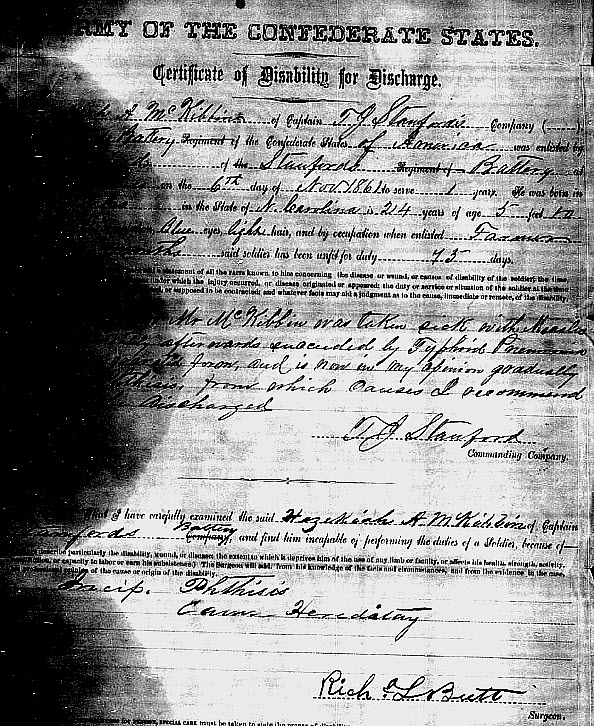 ARMY OF THE CONFEDERATE STATES.
Certificate of Disability for Discharge.
A McKibbin of Captain T J Stanfords Company ( )
Battery Regiment of the Confederate States of America was enlisted by
of the Stanfords Regiment of Battery at
on the 6th day of Nov 1861 to serve 1 years. He was born in
in the State of N. Carolina is 24 years of age 5 feet 10
Blue eyes, light hair, and by occupation when enlisted Farmer
said soldier has been unfit for duty 75 days.
a statement of all the facts known to him concerning the disease or wound, or causes of disability of the soldier; the time,
under which the injury occurred, or disease originated or appeared; the duty or service or situation of the soldier at the
or supposed to be contracted; and whatever facts may aid a judgment as to the cause, immediate or remote, of the disability.
Mr McKibbin was taken sick with Measles
afterwards succeeded by Typhoid Pneumonia
form, and is now in my opinion gradually
from which causes I recommend
discharged
T J Stanford
Commanding Company.
that I have carefully examined the said Hezekiah A McKibbin of Captain
Stanfords Battery Company, and find him incapable of performing the duties of a Soldier, because of
describe particularly the disability, wound, or disease; the extent to which it deprives him of the use of any limb or faculty, or affects his health, strength, activity,
or capacity to labor or earn his subsistence.) The Surgeon will add, from his knowledge of the facts and circumstances, and from the evidence in the case,
opinion of the cause or origin of the disability.
Incip. Phthisis
Cause Hereditary
Richd L Butt
Surgeon.
SPECIAL CARE must be taken to state the